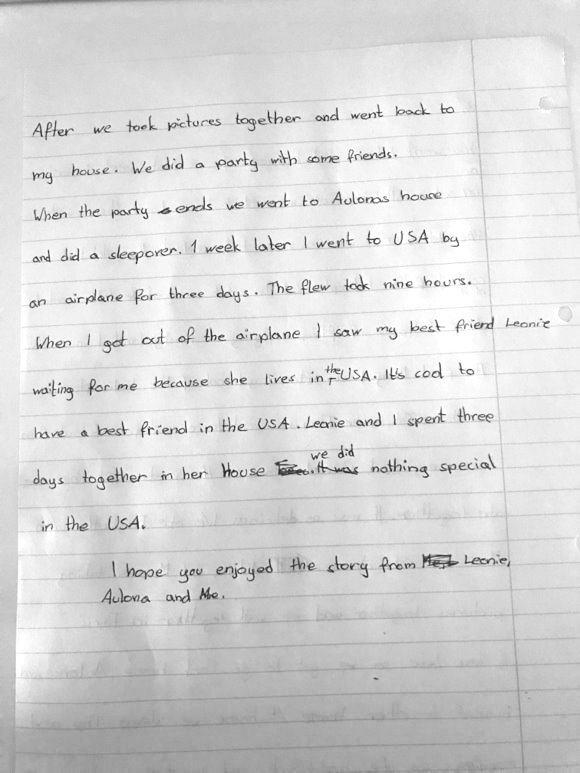 After we took pictures together and went back to
my house. We did a party with some friends.
When the party ends we went to Aulonas house
and did a sleepover. 1 week later I went to USA by
an airplane for three days. The flew took nine hours.
When I got out of the airplane I saw my best friend Leonie
waiting for me because she lives in the USA. It's cool to
have a best friend in the USA. Leonie and I spent three
days together in her House. we did nothing special
in the USA.
I hope you enjoyed the story from Leonie,
Aulona and Me.